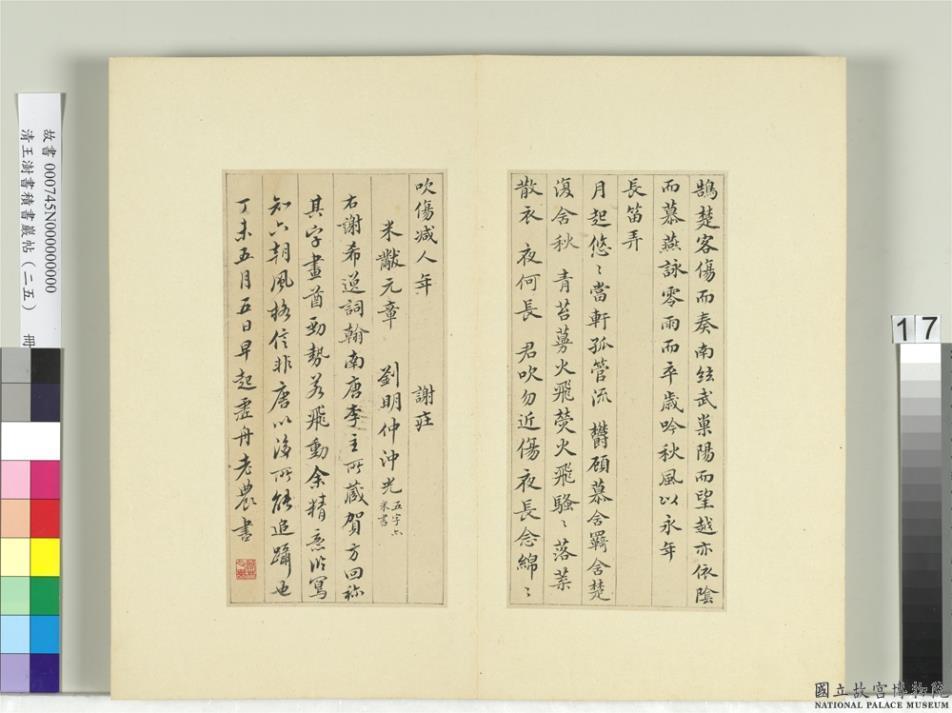 鵠楚客傷而奏南絃武巢陽而望越亦依陰
而慕燕詠零雨而卒歲吟秋風以永年
長笛弄
月起悠〻當軒孤管流鬱顧慕含羈含楚
復含秋 青苔蔓火飛熒火飛騷〻落葉
散衣 夜何長 君吹勿近傷夜長念綿〻
吹傷減人年 謝莊
米黻元章 劉明仲沖光 五字亦
米書
右謝希逸詞翰南唐李主所藏賀方回称
其字畫遒勁勢若飛動余精意臨寫
知六朝風格信非唐以後所能追躡也
丁未五月五日早起虛舟老農書
故書 000745N000000000
清王澍書積書巖帖(二五) 冊
17
國立故宮博物院
NATIONAL PALACE MUSEUM